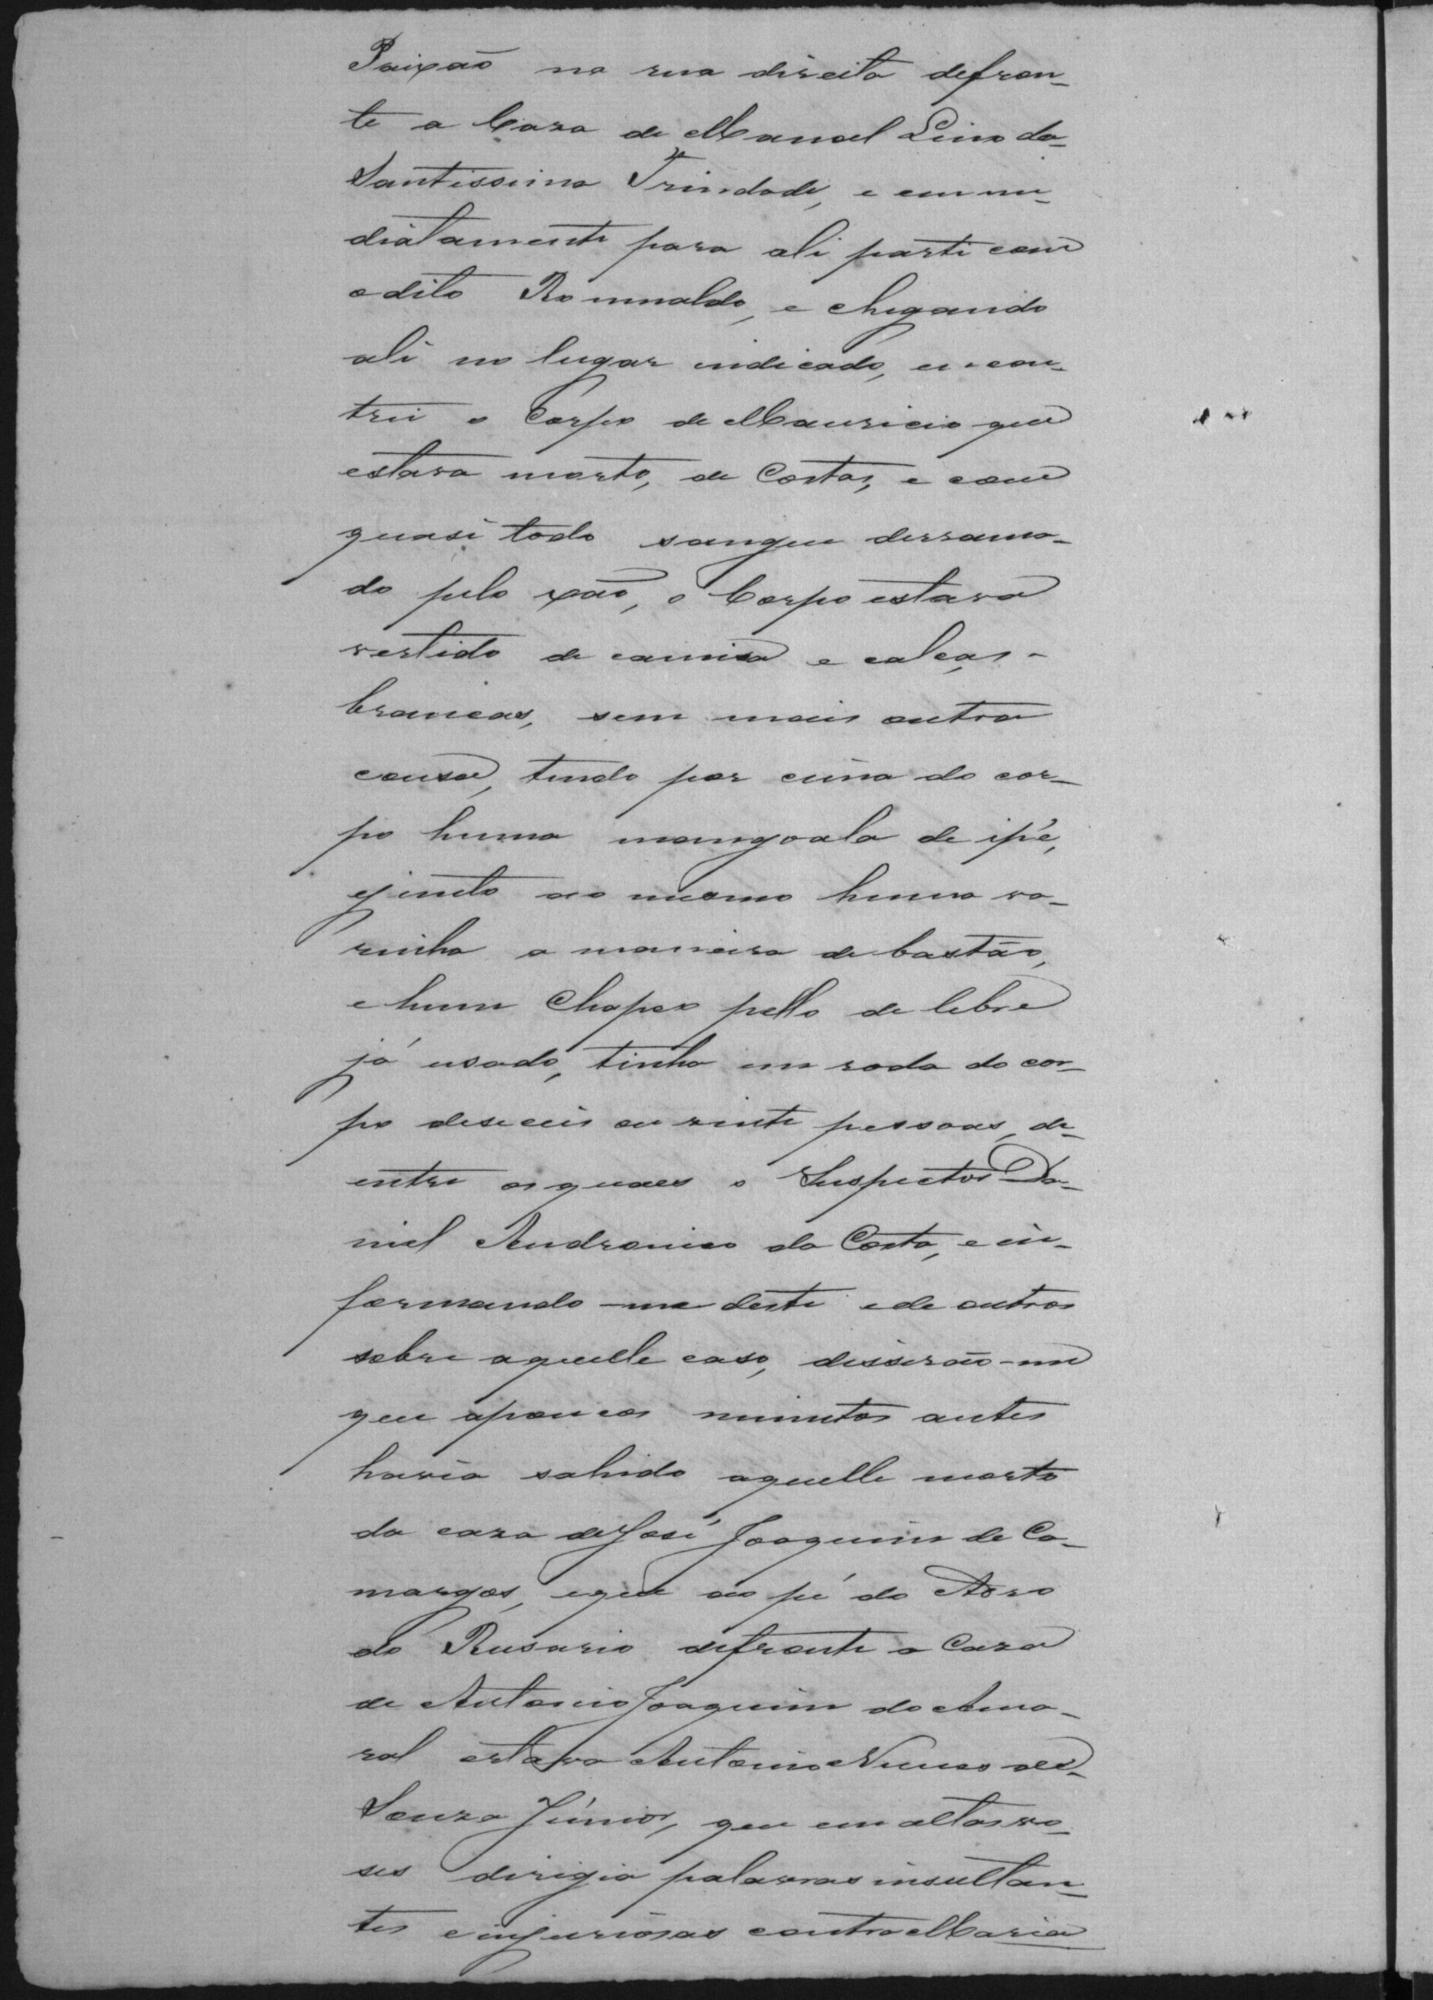 Paixão na rua direita defron-
te a Caza de Manoel Lino da
Santissima Trindade, e emme-
diatamente para ali parti com
o dito Romualdo, e chegando
ali no lugar indicado, encon-
trei o Corpo de Mauricio que
estava morto, de Costas, e com
quasi todo sangue derrama-
do pelo xão, o Corpo estava
vestido de camisa e calças
brancas, sem mais outra
cousa, tendo por cima do cor-
po huma mangoala de ipé,
e junto ao mesmo huma va-
rinha a maneira de bastão,
e hum Chapeo pello de lebre
já usado, tinha em roda do cor-
po deseceis ou vinte pessoas, de-
entre as quaes o Inspector Da-
niel Andronico da Costa, e in-
formando-me deste e de outros
sobre aquelle caso, disserão-me
que a poucos minutos antes
havia sahido aquelle morto
da caza de José Joaquim de Ca-
margos, e que ao pé do Adro
do Rusario defronte a Caza
de Antonio Joaquim do Ama-
ral estava Antonio Nunes de
Souza Júnior, que em altas vo-
ses dirigia palavras insultan-
tes e injuriósas contra Maria